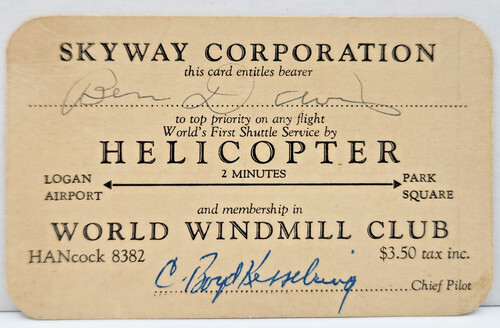 SKYWAY CORPORATION
this card entitles bearer
Ben D
to top priority on any flight
World's First Shuttle Service by
HELICOPTER
2 MINUTES
LOGAN AIRPORT PARK SQUARE
and membership in
WORLD WINDMILL CLUB
HANcock 8382 $3.50 tax inc.
C. Boyd Kesselring
Chief Pilot